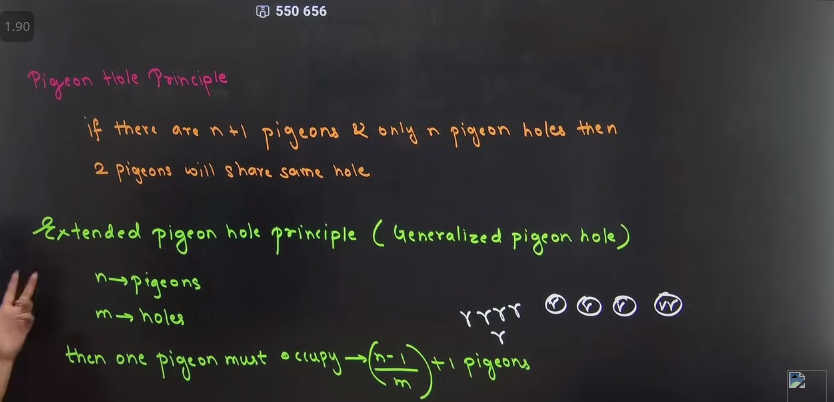 550 656
1.90
Pigeon Hole Principle
if there are n+1 pigeons & only n pigeon holes then
2 pigeons will share same hole
Extended pigeon hole principle (Generalized pigeon hole)
n→pigeons
m→holes
then one pigeon must occupy→(n-1/m)+1 pigeons